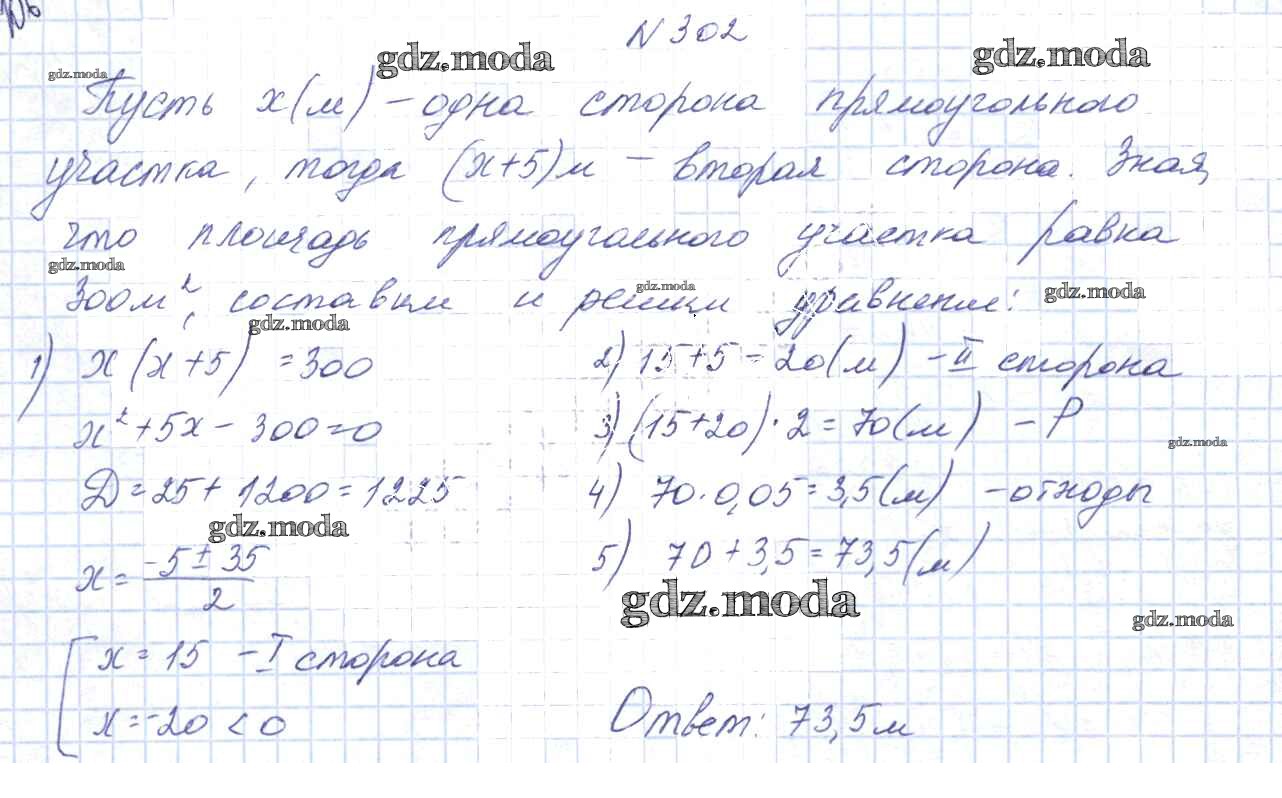 N 302
Пусть x(м) – одна сторона прямоугольного
участка, тогда (x+5)м – вторая сторона. Зная,
что площадь прямоугольного участка равна
300м², составим и решим уравнение:
1) x(x+5) = 300
x²+5x – 300=0
D=25+1200=1225
x= (-5±35)/2
[ x=15 – I сторона
x=-20 < 0
2) 15+5=20(м) – II сторона
3) (15+20)·2=70(м) – P
4) 70·0,05=3,5(м) – отходы
5) 70+3,5=73,5(м)
Ответ: 73,5м
gdz.moda
gdz.moda
gdz.moda
gdz.moda
gdz.moda
gdz.moda
gdz.moda
gdz.moda
gdz.moda
gdz.moda
gdz.moda